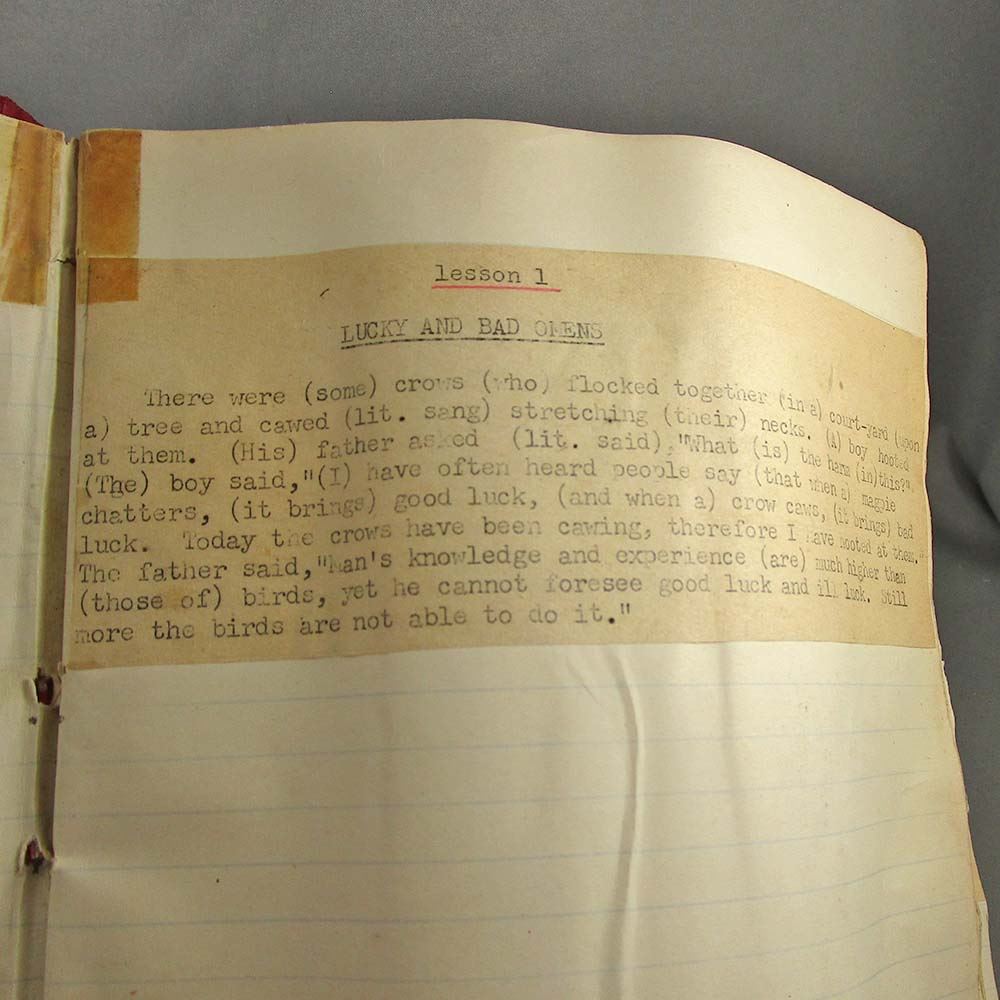 lesson 1
LUCKY AND BAD OMENS
There were (some) crows (who) flocked together (in a) court-yard (upon
a) tree and cawed (lit. sang) stretching (their) necks. (A) boy hooted
at them. (His) father asked (lit. said), "What (is) the harm (in)this?".
(The) boy said,"(I) have often heard people say (that when a) magpie
chatters, (it brings) good luck, (and when a) crow caws, (it brings) bad
luck. Today the crows have been cawing, therefore I have hooted at them."
The father said,"Man's knowledge and experience (are) much higher than
(those of) birds, yet he cannot foresee good luck and ill luck. Still
more the birds are not able to do it."